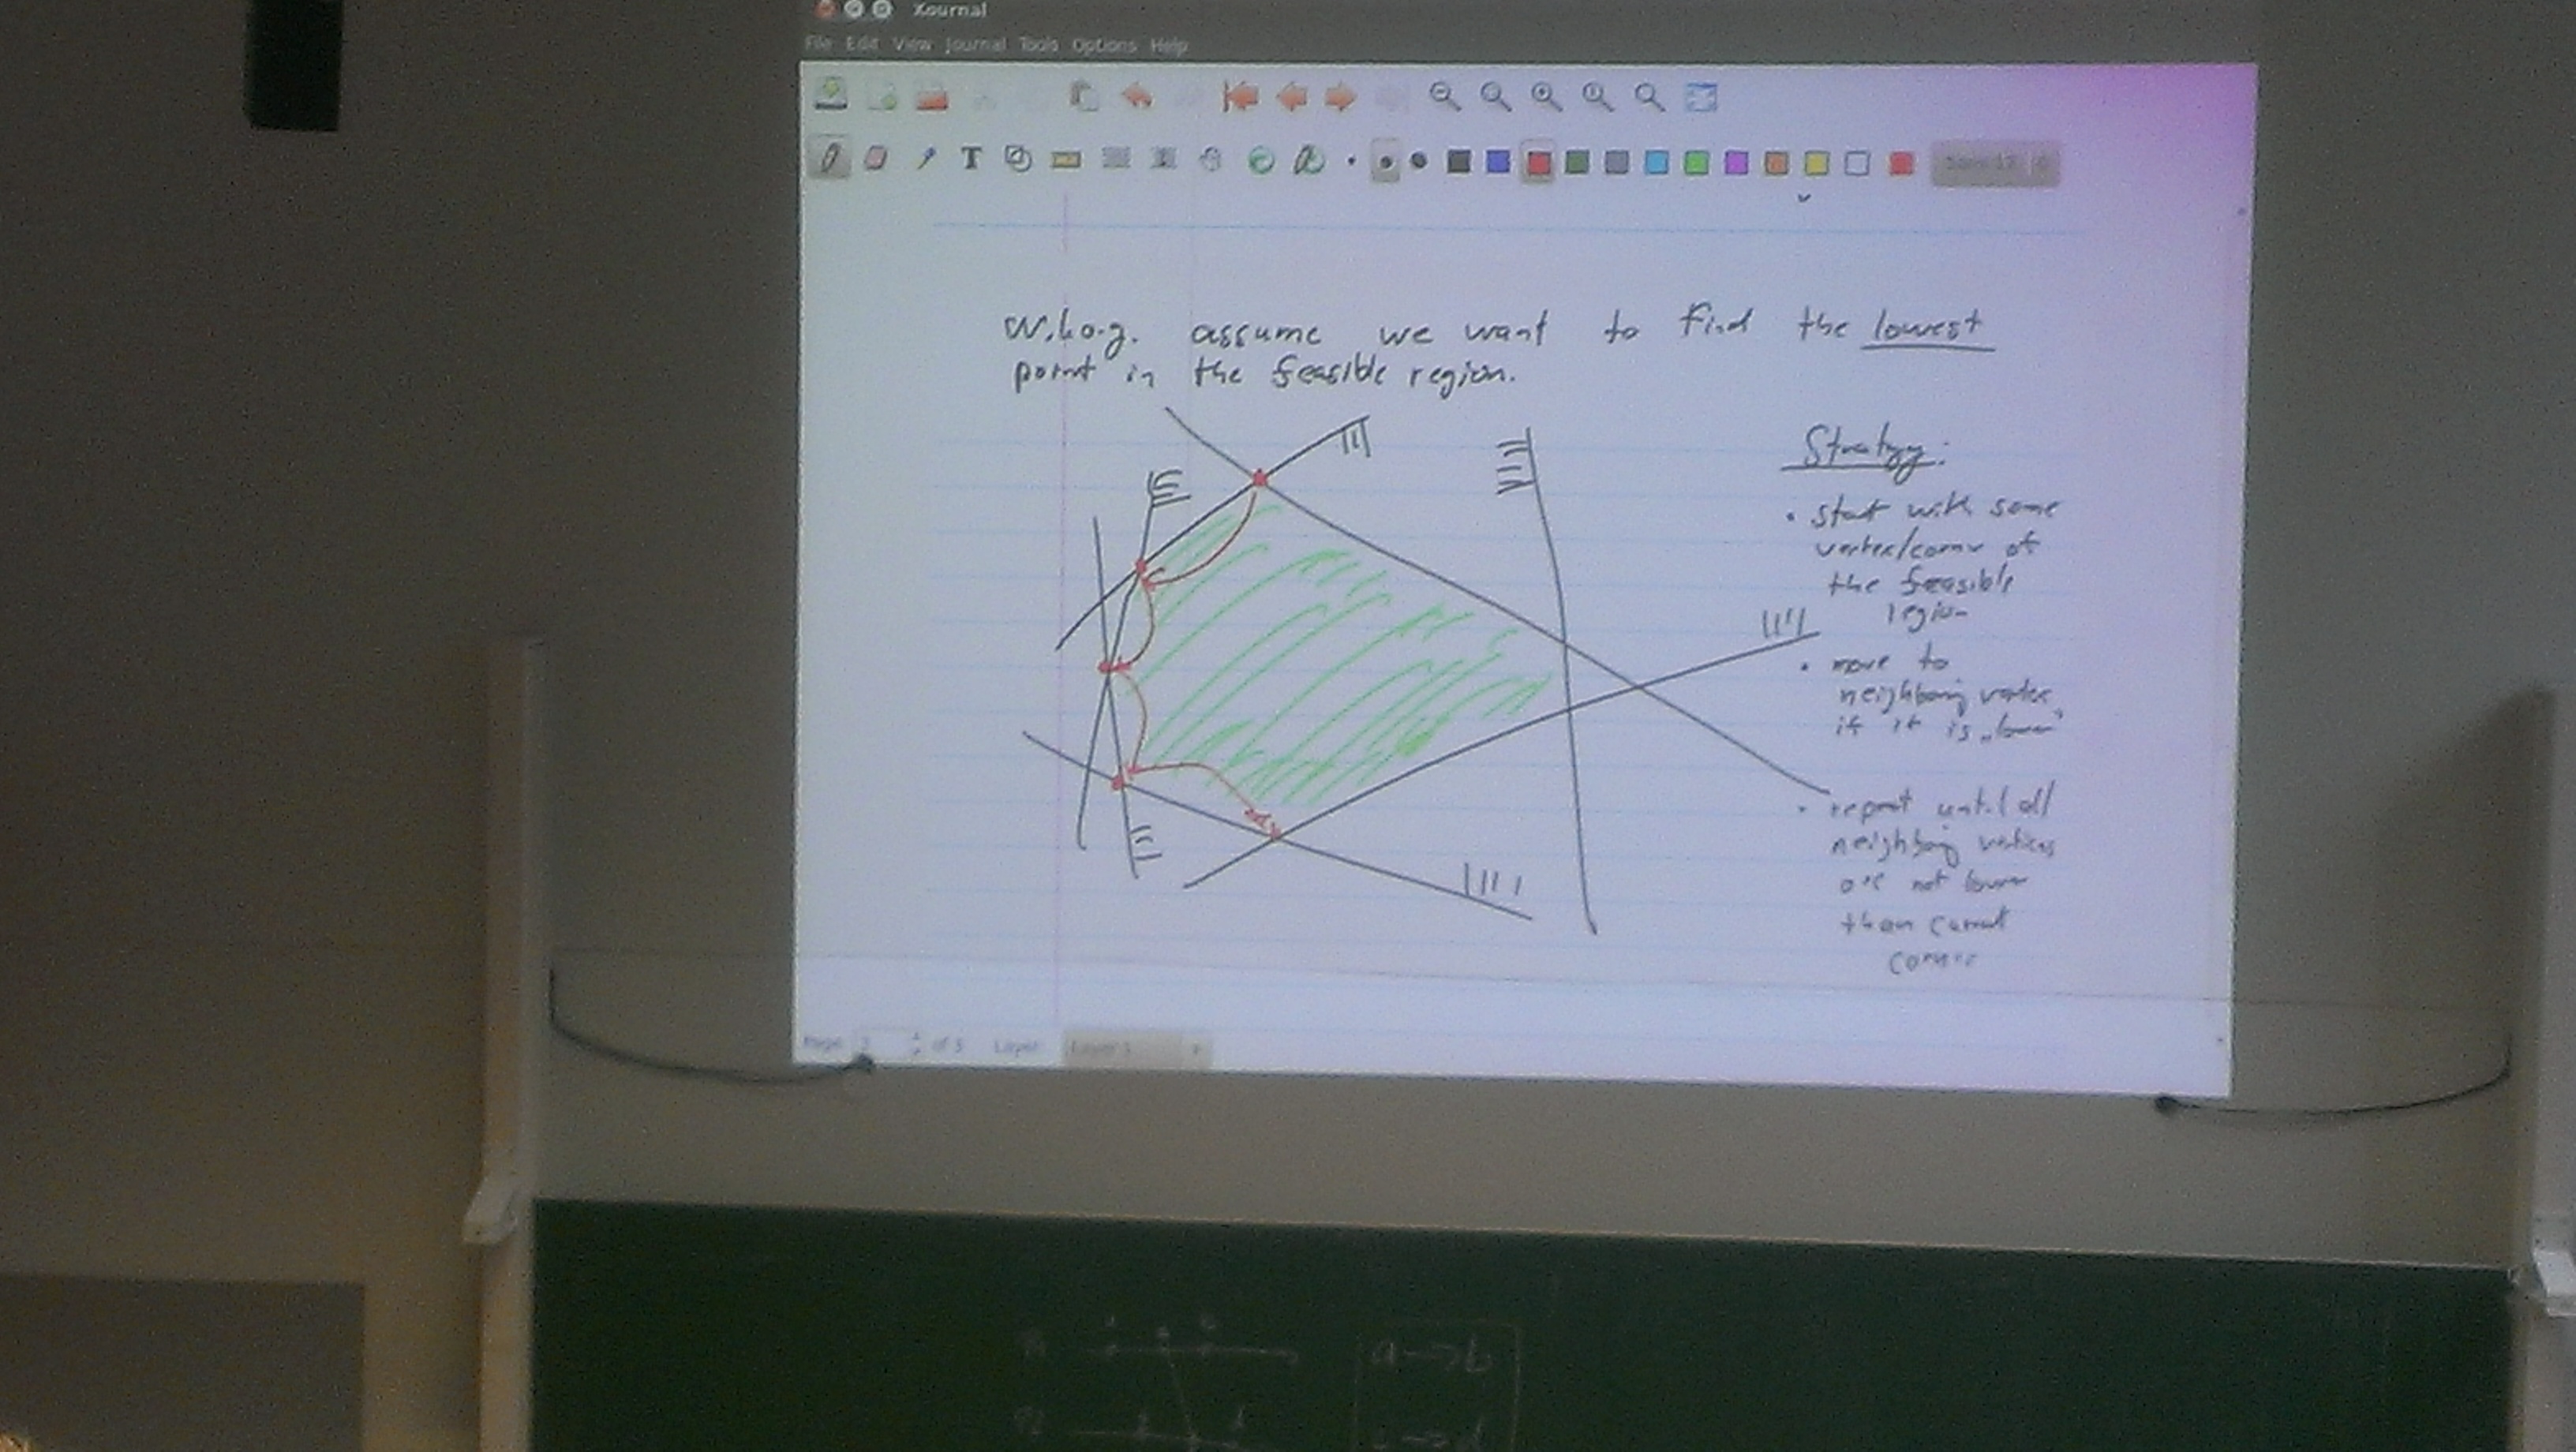 Xournal
File Edit View Journal Tools Options Help
T
W.l.o.g. assume we want to find the lowest
point in the feasible region.
Strategy:
• start with some
vertex/corner of
the feasible
region
• move to
neighboring vertex
if it is „lower"
• repeat until all
neighboring vertices
are not lower
than current
corner
Page of 3 Layer: Layer 1
a→b